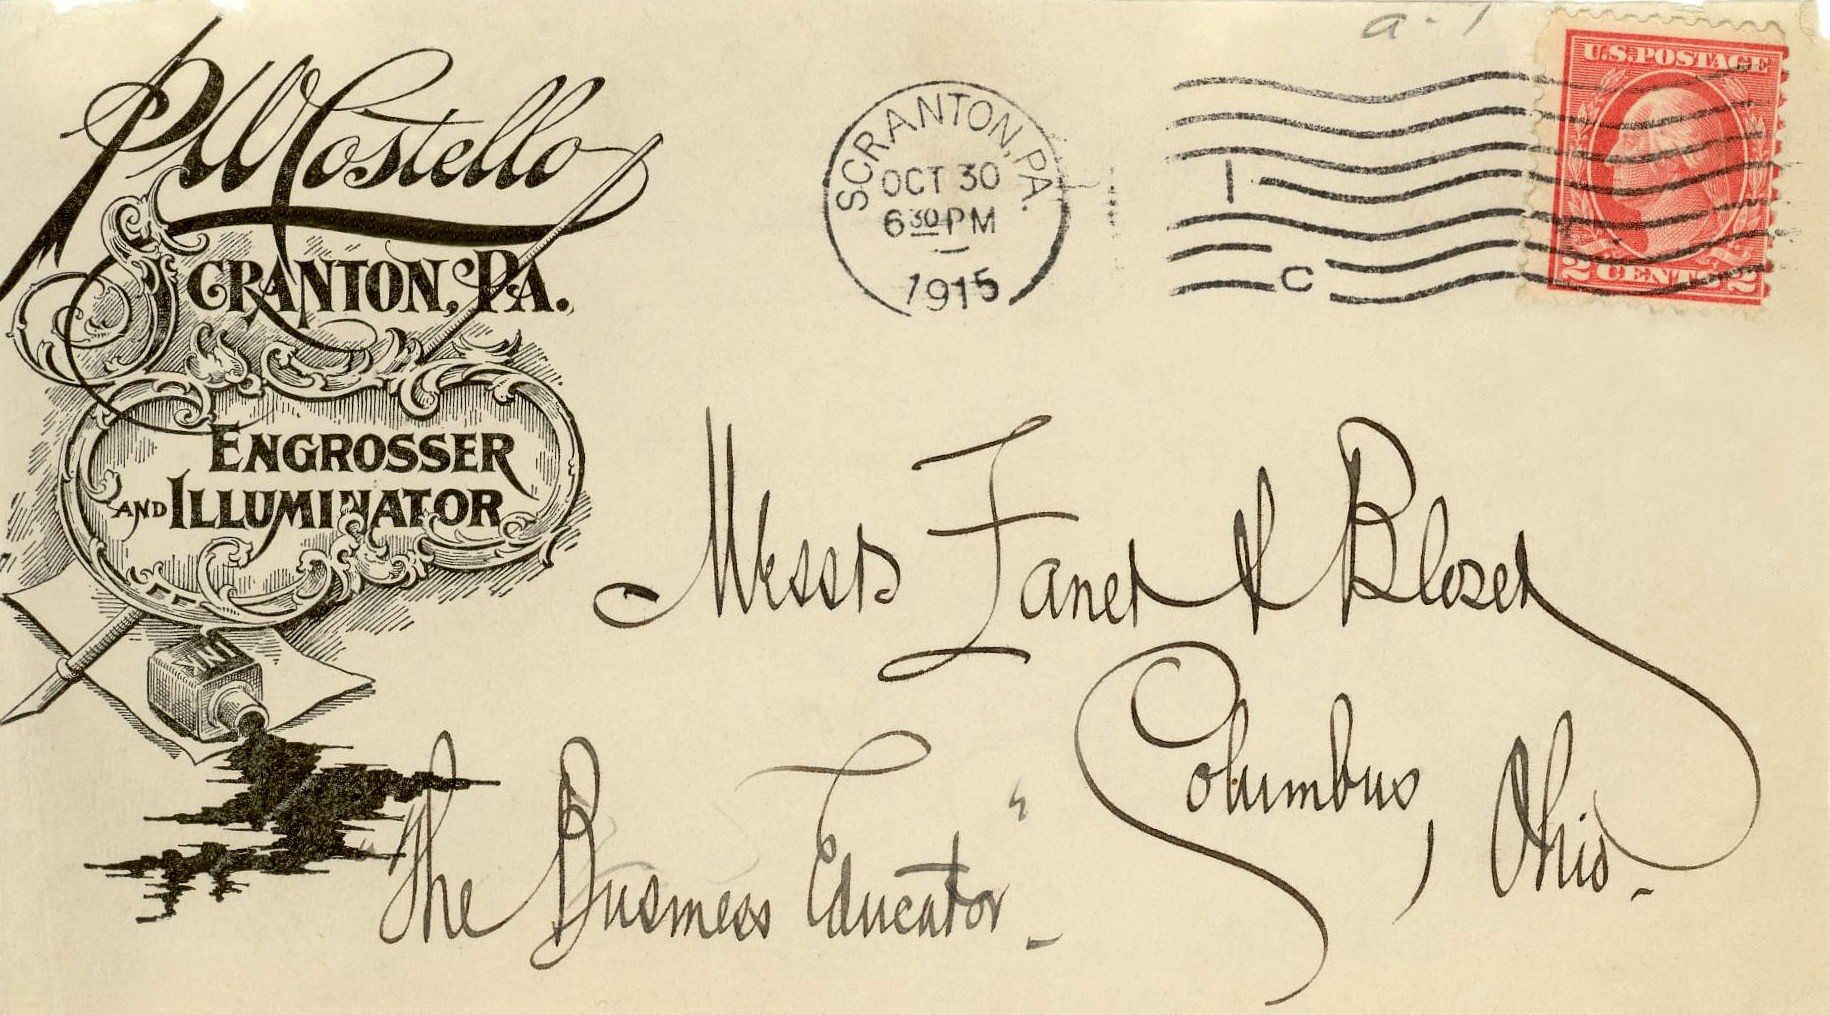 P W Costello
SCRANTON, PA.
ENGROSSER
AND ILLUMINATOR
INK
a-1
SCRANTON, PA.
OCT 30
6 30 PM
1915
1
C
U.S. POSTAGE
2 CENTS 2
Messrs Zaner & Bloser
Columbus, Ohio.
"The Business Educator"